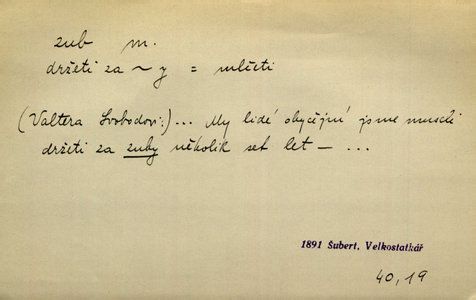 zub m.
držeti za ~ y = mlčeti
(Valtera Svobodovi:) ... My lidé obyčejní jsme museli
držeti za zuby několik set let — ...
1891 Šubert, Velkostatkář
40, 19